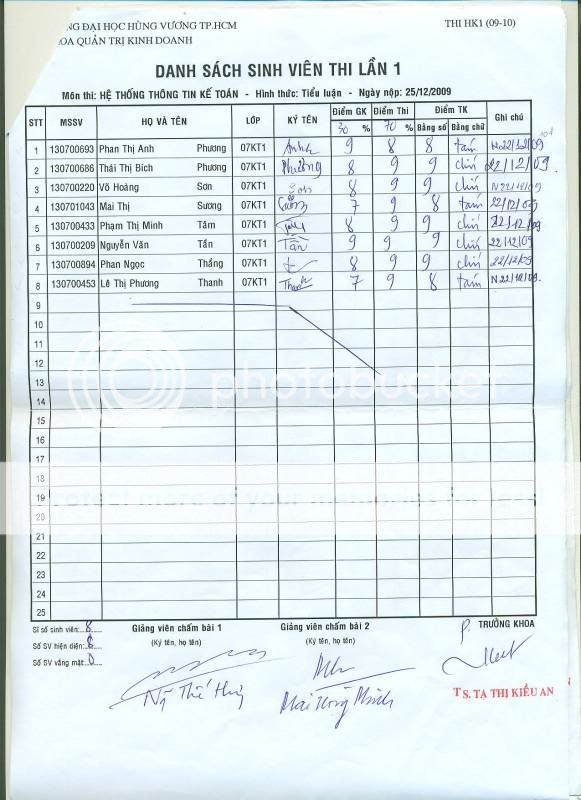 NG ĐẠI HỌC HÙNG VƯƠNG TP.HCM THI HK1 (09-10)
OA QUẢN TRỊ KINH DOANH
DANH SÁCH SINH VIÊN THI LẦN 1
Môn thi: HỆ THỐNG THÔNG TIN KẾ TOÁN - Hình thức: Tiểu luận - Ngày nộp: 25/12/2009
STT MSSV HỌ VÀ TÊN LỚP KÝ TÊN Điểm GK Điểm Thi Điểm TK Ghi chú
30 % 70 % Bằng số Bằng chữ
1 130700693 Phan Thị Anh Phương 07KT1 9 8 8 tám 22/12/09
2 130700686 Thái Thị Bích Phương 07KT1 Phường 8 9 9 chín 22/12/09
3 130700220 Võ Hoàng Sơn 07KT1 Sơn 8 9 9 chín N22/12/09
4 130701043 Mai Thị Sương 07KT1 Sương 7 9 8 tám 22/12/09
5 130700433 Phạm Thị Minh Tâm 07KT1 8 9 9 chín 22/12/09
6 130700209 Nguyễn Văn Tấn 07KT1 Tấn 9 9 9 chín 22/12/09
7 130700894 Phan Ngọc Thắng 07KT1 8 9 9 chín 22/12/09
8 130700453 Lê Thị Phương Thanh 07KT1 Thanh 7 9 8 tám N22/12/09.
9
10
11
12
13
14
15
16
17
18
19
20
21
22
23
24
25
photobucket
Protect more of your memories for less
Sĩ số sinh viên: 8 Giảng viên chấm bài 1 Giảng viên chấm bài 2 P. TRƯỞNG KHOA
Số SV hiện diện: 8 (Ký tên, họ tên) (Ký tên, họ tên)
Số SV vắng mặt: 0
TS. TẠ THỊ KIỀU AN